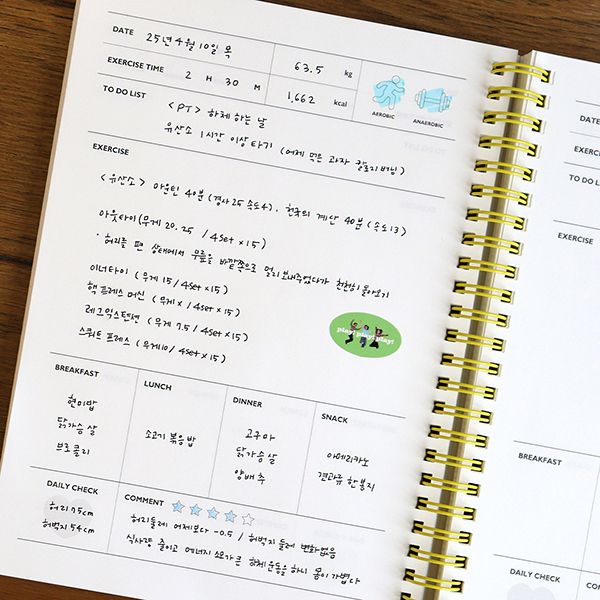 DATE 25년 4월 10일 목 63.5 kg
EXERCISE TIME 2 H 30 M 1,662 kcal
AEROBIC ANAEROBIC
TO DO LIST <PT> 하체 하는 날
유산소 1시간 이상 타기 (어제 먹은 과자 칼로리버닝)
EXERCISE
<유산소> 마운틴 40분 (경사 25 속도 4). 천국의 계단 40분 (속도 13)
아웃타이 (무게 20. 25 / 4set × 15)
· 허리를 편 상태에서 무릎을 바깥쪽으로 멀리 보내주었다가 천천히 돌아오기
이너타이 (무게 15 / 4set × 15)
핵 프레스 머신 (무게 × / 4set × 15)
레그 익스텐션 (무게 7.5 / 4set × 15)
스쿼트 프레스 (무게 10 / 4set × 15)
play! play! play!
BREAKFAST
현미밥
닭가슴살
브로콜리
LUNCH
소고기 볶음밥
DINNER
고구마
닭가슴살
양배추
SNACK
아메리카노
견과류 한봉지
DAILY CHECK
허리 75cm
허벅지 54cm
COMMENT
허리둘레 어제보다 -0.5 / 허벅지 둘레 변화없음
식사량 줄이고 에너지 소모가 큰 하체운동을 하니 몸이 가볍다
DATE
EXERCISE
TO DO LIST
EXERCISE
BREAKFAST
DAILY CHECK